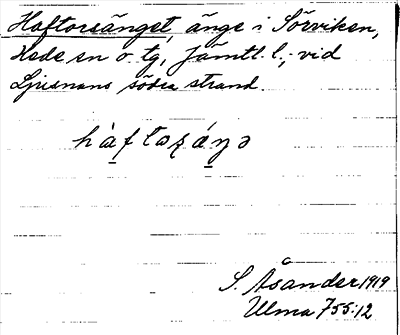 Haftorsänget, änge i Sörviken,
Hede sn o. tg, Jämtl. l.; vid
Ljusnans södra strand.
hàftaʂáŋə
S. Åsander 1919
Ulma 755:12